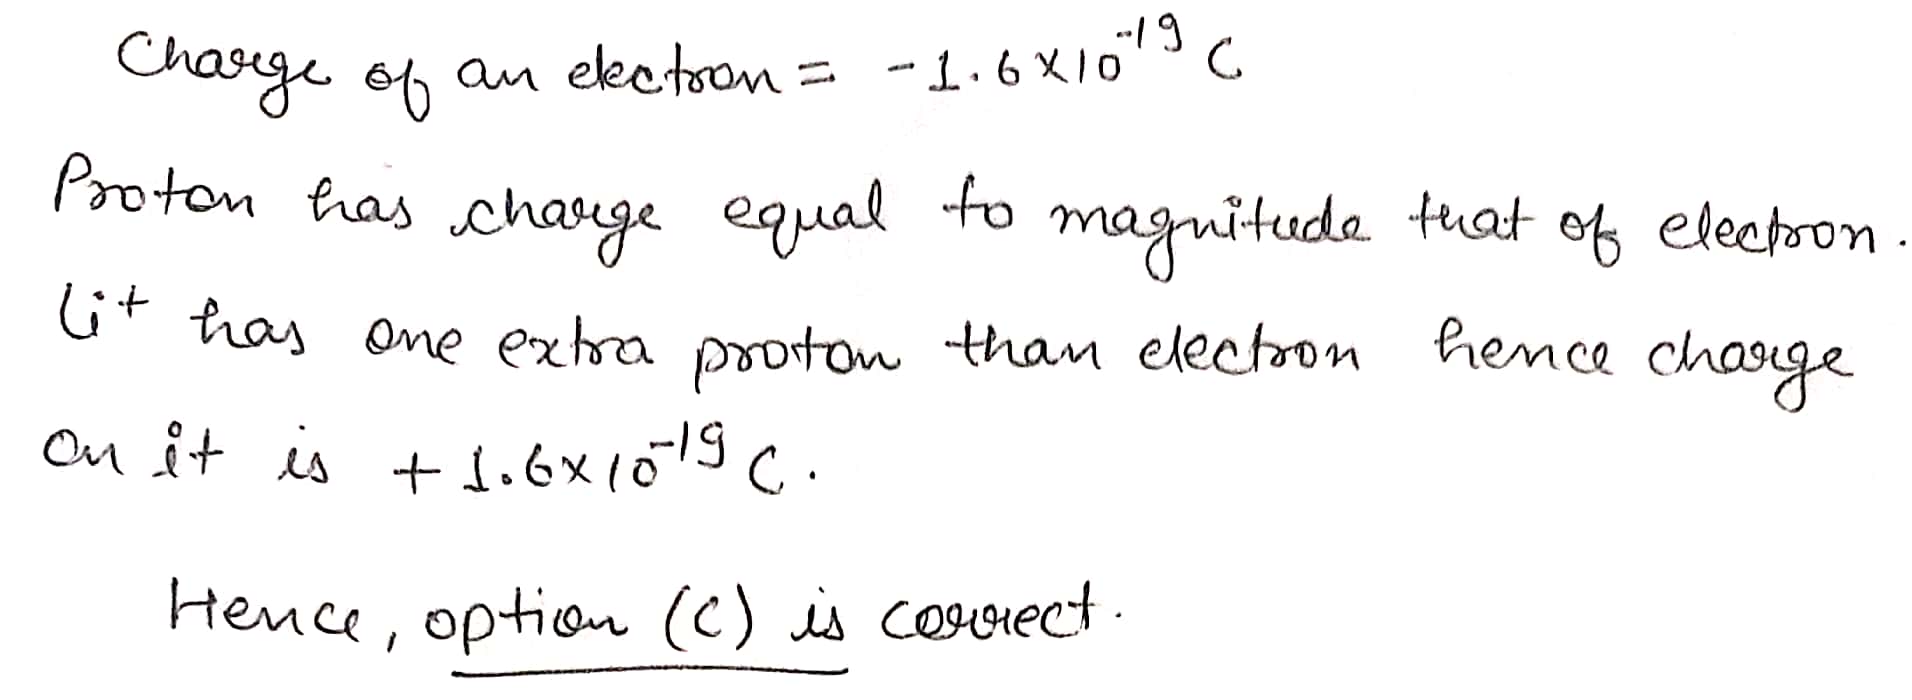 Charge of an electron = -1.6×10⁻¹⁹ C
Proton has charge equal to magnitude that of electron.
Li⁺ has one extra proton than electron hence charge
on it is +1.6×10⁻¹⁹ C.
Hence, option (c) is correct.